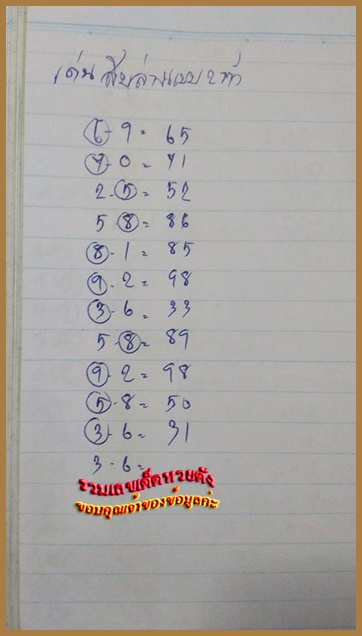 เด่น สิบล่างแบบ 2 ตัว
6-9= 65
7-0= 71
2-5= 52
5-8= 86
8-1= 85
9-2= 98
3-6= 33
5-8= 89
9-2= 98
5-8= 50
3-6= 31
3-6=
รวมเลขเด็ดหวยดัง
ขอบคุณเจ้าของข้อมูลค่ะ